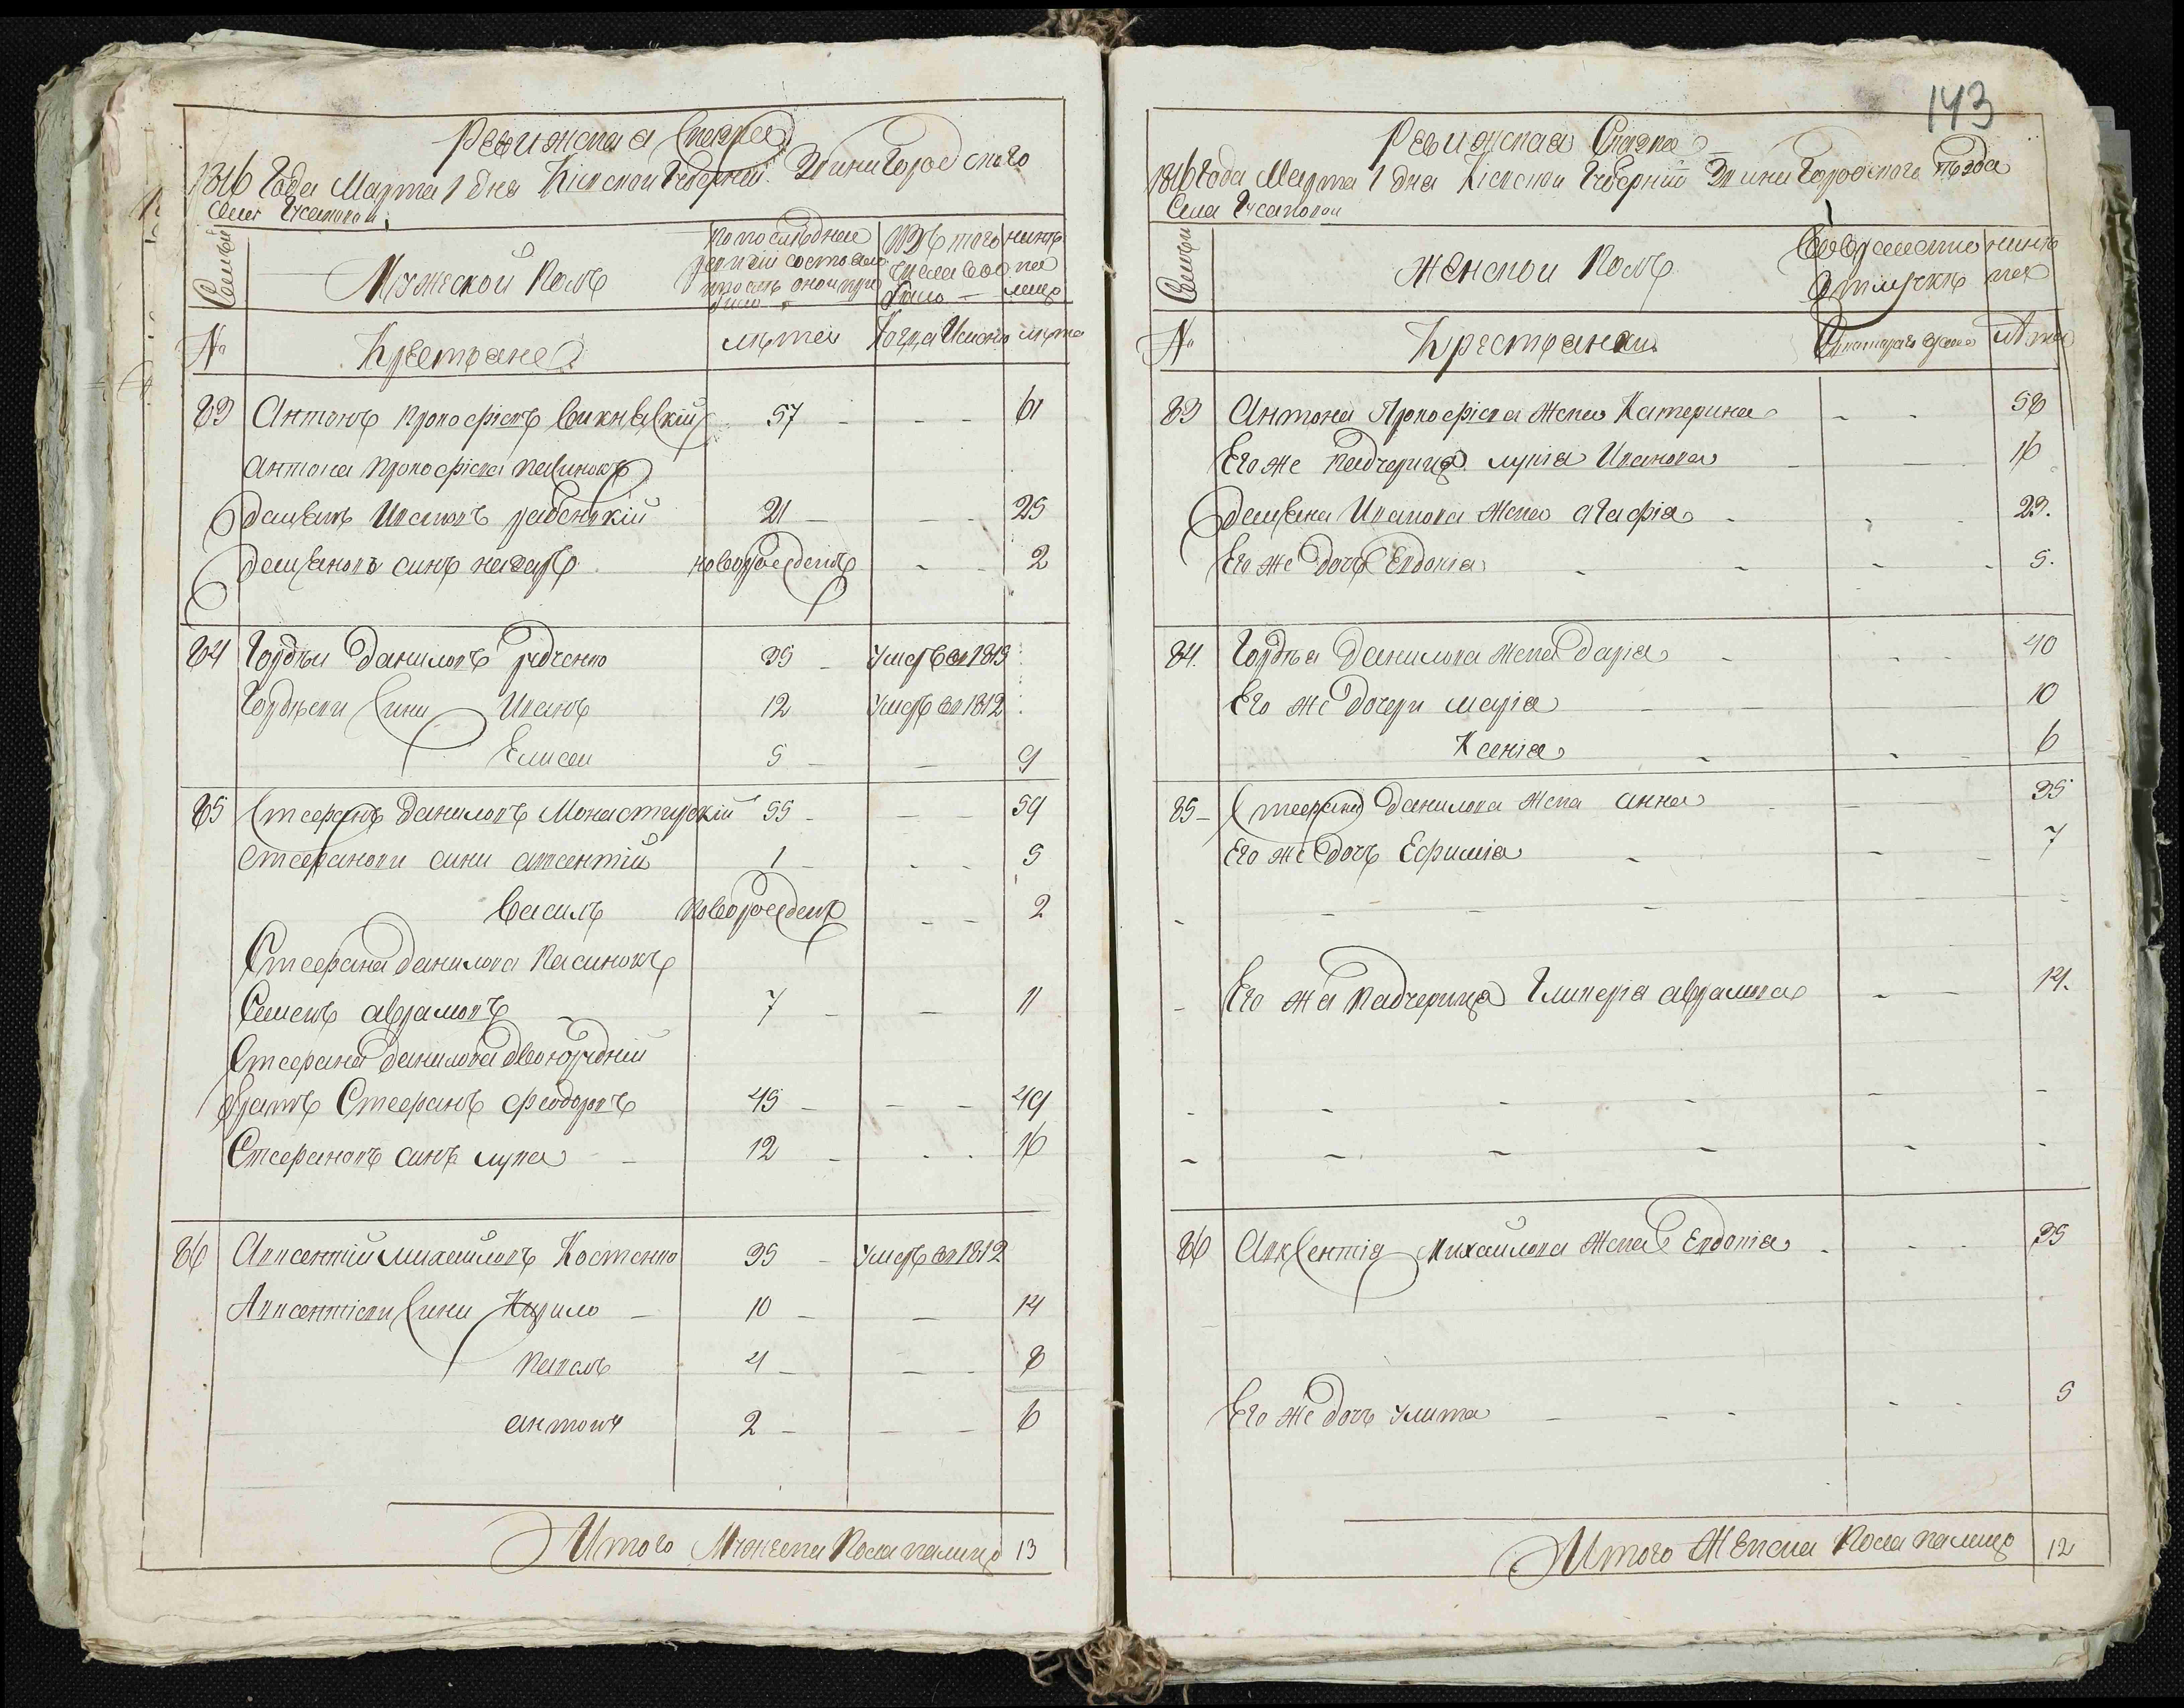 Ревижская Сказка
1816 Года Марта 1 дня Кіевской Губерніи Звинигородского
Села Гусаковки
Семьи
Мужской Полъ
По последней ревизіи состояло и после оной прибыло
Изъ того числа выбыло
ныне на лицо
№
Крестьяне
летъ
Когда Именно
лета
83 Антонъ Прокофіевъ Вишневскій 57 - - - 61
Антона Прокофіева пасинокъ
Демьянъ Ивановъ 21 - - - 25
Демьяновъ синъ Назаръ новорожденъ - - 2
84 Гордей Даниловъ Рудченко 35 - умеръ въ 1813
Гордеевы сини Иванъ 12 умеръ въ 1812
Елисей 5 - - 9
85 Стефанъ Даниловъ Монастирскій 55 - - - 59
Стефановы сини Авксентій 1 - - - 5
Василь новорожденъ - - 2
Стефана Данилова Пасинокъ
Семенъ Аврамовъ 7 - - 11
Стефана Данилова двоюрудній
братъ Стефанъ Феодоровъ 45 - - - 49
Стефановъ синъ Лука - 12 - - - 16
86 Авксентій Михайловъ Костенко 35 - умеръ въ 1812
Авксентіевы сини Кирило - 10 - - 14
Павелъ 4 - - - 8
Антонъ 2 - - - 6
Итого Мужеска Пола налицо 13
143
Ревижская Сказка
1816 Года Марта 1 дня Кіевской Губерніи Звинигородского Поезда
Села Гусаковки
Семьи
Женской Полъ
Во временно отлучке
ныне на лицо
№
Крестьянки
лета
83 Антона Прокофіева жена Катерина - - 58
Его же Падчерица Лукіа Иванова - - 16
Демьяна Иванова жена Агафіа - - - 23.
Его же дочь Евдокіа - - - - 5.
84. Гордея Данилова жена Даріа - - - 40
Его же дочери Маріа - - - 10
Ксеніа - - - 6
85 - Стефана Данилова жена Анна - - - 35
Его же дочь Ефиміа - - - 7
Его жа Падчерица Гликеріа Аврамова - - 14.
86 Авксентія Михайлова жена Евдокіа - - - 35
Его же дочь Улита - - - - - 5
Итого Женска Пола налицо 12